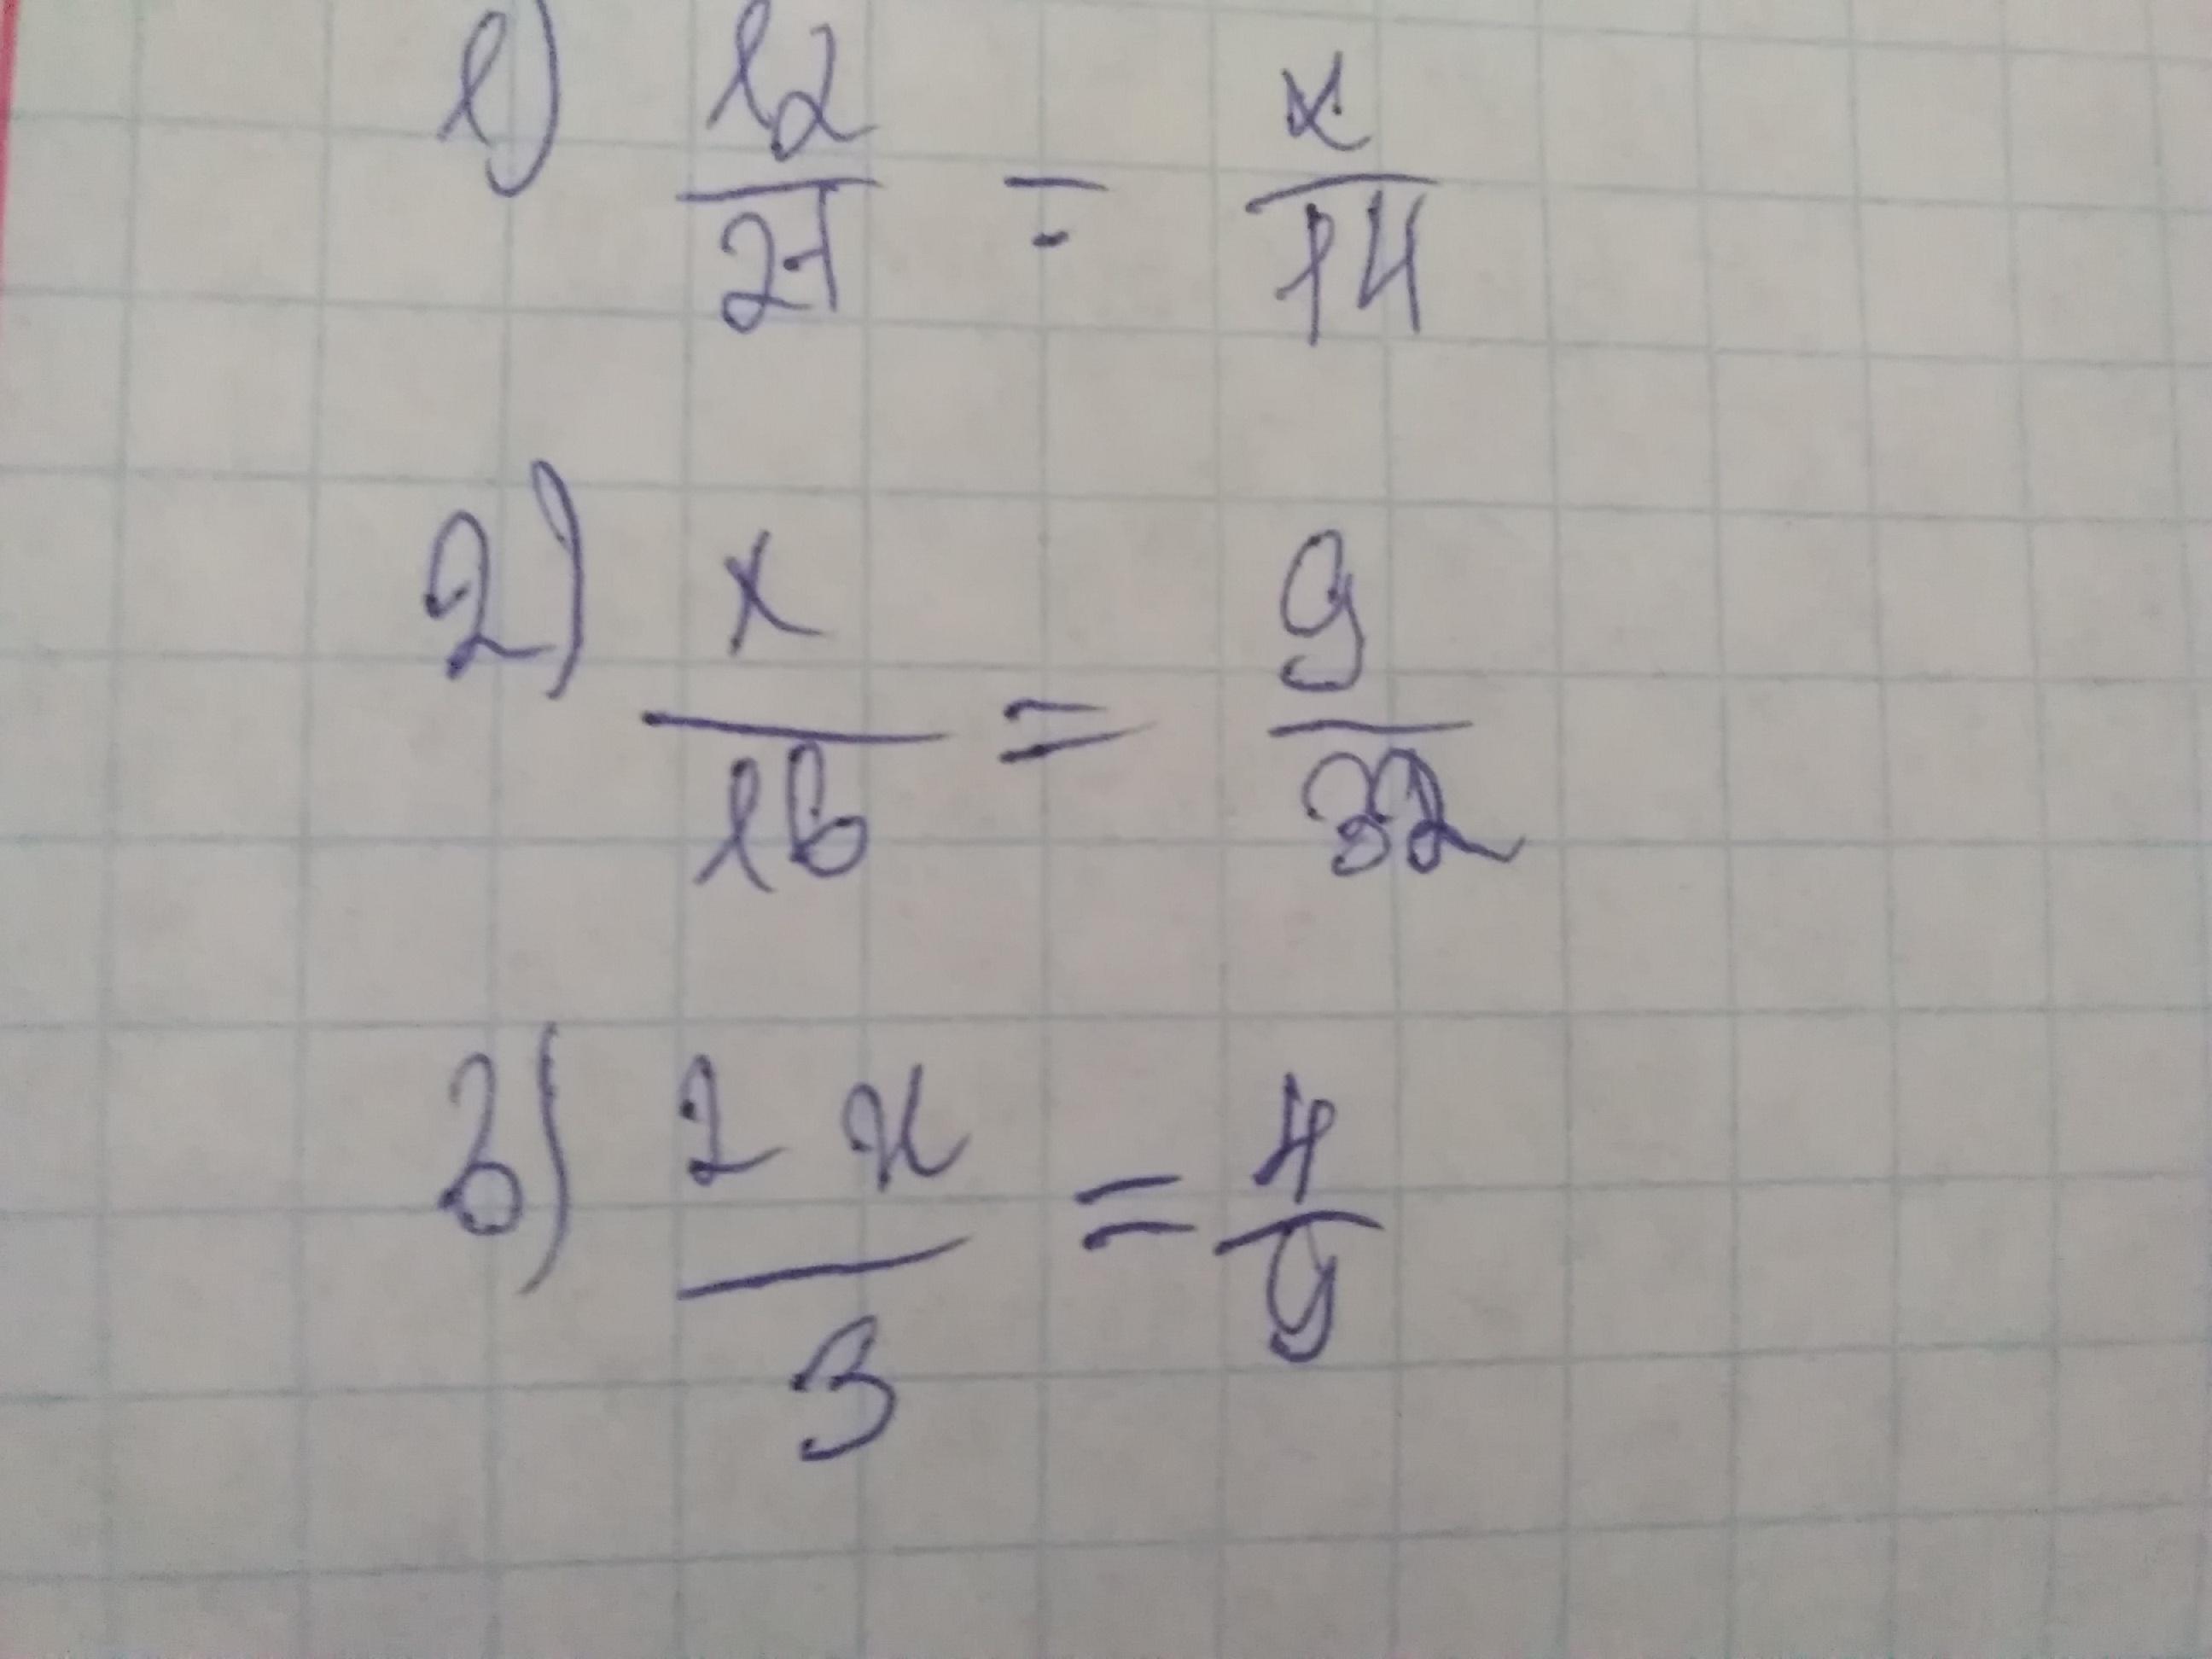 1) 12/21 = x/14
2) x/16 = 9/32
3) 2x/3 = 4/9